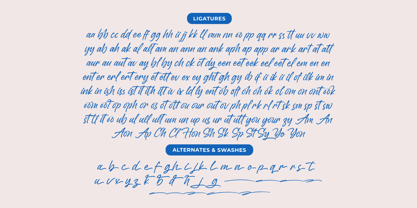 LIGATURES
aa bb cc dd ee ff gg hh ii jj kk ll mm nn oo pp qq rr ss tt uu vv ww
yy ab ah ak al all am an ann an ank aph ap app ar ark art at att
aur au aut av ay bl by ch ck ct dy een eet eek eel eat el em en en
ent er erl ert ery et ett ev ex ey ght gh gy ib if ii ik il il of ilk im in
ink in ish is ist it ith itt iv ix ld ly ent ob oft oh oh ok ol om on ont ook
oom oot op oph or os ot ott ou our out ov ph pl rk rl rt sk sm sp st sw
st tl tt to ub ul ull ult um un up us ur ut utt you your zy Am An
Aon Ap Ch Cl Hon Sh Sk Sp St Sy Yo Yon
ALTERNATES & SWASHES
a b c d e f g h i j k l m n o p q r r s t
u v x y z k b d h j g